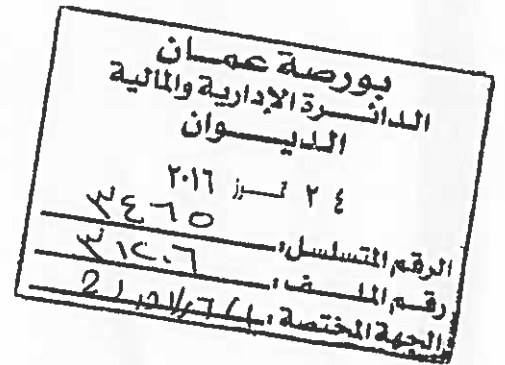 بورصة عمان
الدائرة الإدارية والمالية
الديوان
٢٤ تموز ٢٠١٦
الرقم المتسلسل: ٣٤٦٥
رقم الملف: ٣١٢٠٦
الجهة المختصة: